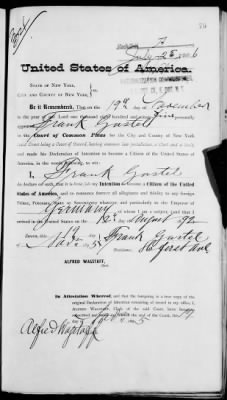 July 25 1896
United States of America.
STATE OF NEW YORK,
CITY AND COUNTY OF NEW YORK,
Be it Remembered, That on the 19th day of November
in the year of the Lord one thousand eight hundred and ninety five, personally
appeared Frank Gastel
in the Court of Common Pleas for the City and County of New York
and made his Declaration of Intention to become a Citizen of the United States of
America, in the words following, to wit:
I, Frank Gastel
do declare on oath, that it is bona fide my Intention to become a Citizen of the United
States of America, and to renounce forever all allegiance and fidelity to any foreign
Prince, Potentate, State or Sovereignty whatever, and particularly to the Emperor of
Germany of whom I am a subject, and that I
arrived in the United States on the day of August 92
Sworn, this 19
day of Nov 5 Frank Gastel
First Ave
ALFRED WAGSTAFF,
Clerk.
In Attestation Whereof, and that the foregoing is a true copy of the
original Declaration of Intention remaining of record in my office, I,
ALFRED WAGSTAFF, Clerk of the said Court, have hereunto
subscribed my name and affixed the seal of the said Court, this 19
day of Nov 5
Alfred Wagstaff